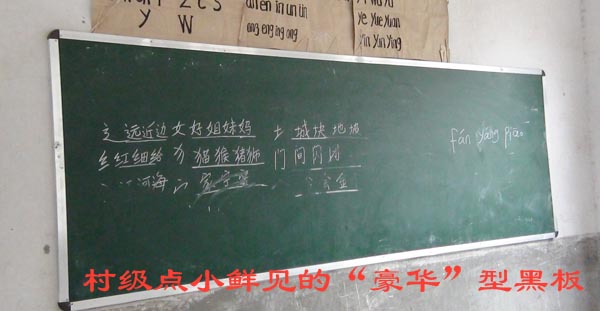 y W
an en in un ün
ang eng ing ong
ye yue yuan
yin yun ying
辶 远近边 女 好姐妹妈 土 城块地坡
纟 红细给 犭 猫猴猪狮 门 间闪
河海 宀 家字室
fán piào
村级点小鲜见的“豪华”型黑板